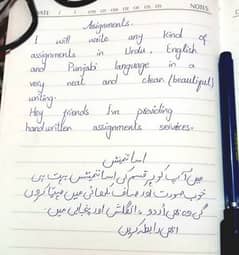 DATE
NOTES
Assignments.
I will write any kind of
assignments in Urdu, English
and Punjabi language in a
very neat and clean (beautiful)
writing.
Hey friends I'm providing
handwritten assignments services.
اسائنمنٹس
میں آپ کو ہر قسم کی اسائنمنٹس
خوب صورت اور صاف لکھائی میں مہیا کروں
گی وہ بھی اُردو، انگلش اور پنجابی میں۔
ابھی رابطہ کریں